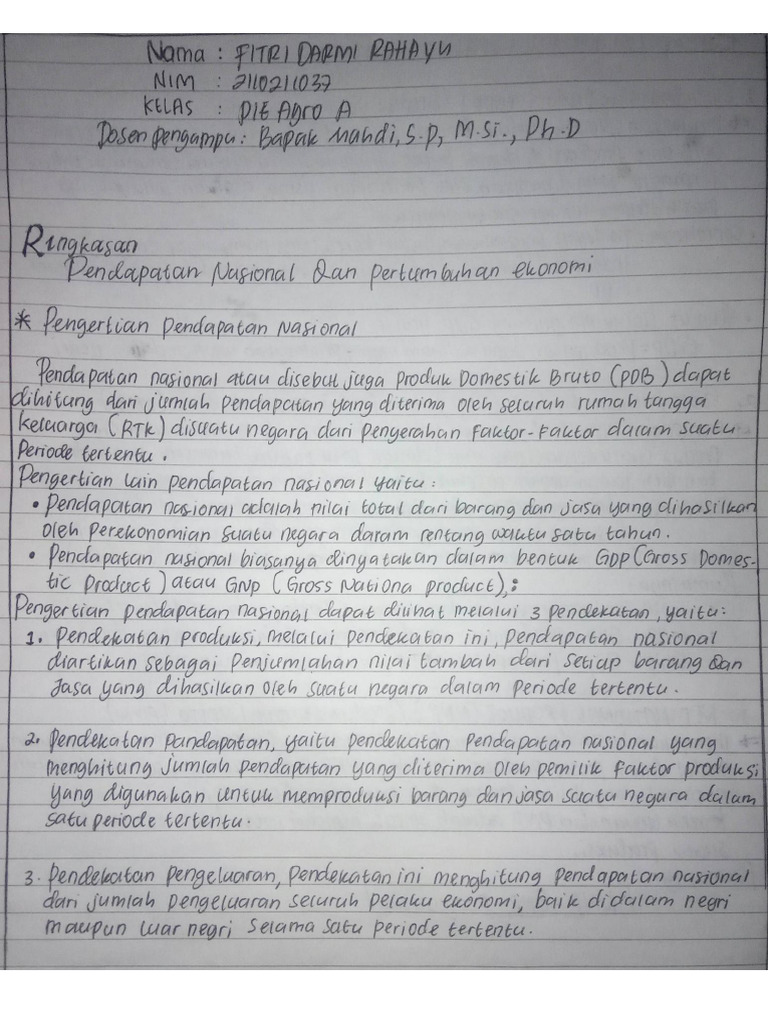 Nama : FITRI DARMI RAHAYU
NIM : 2110211037
KELAS : PIE Agro A
Dosen pengampu : Bapak Mahdi, S.P, M.Si., Ph.D
Ringkasan
Pendapatan Nasional Dan pertumbuhan ekonomi
* Pengertian Pendapatan Nasional
Pendapatan nasional atau disebut juga Produk Domestik Bruto (PDB) dapat
dihitung dari jumlah pendapatan yang diterima oleh seluruh rumah tangga
keluarga (RTK) disuatu negara dari penyerahan faktor-faktor dalam suatu
Periode tertentu.
Pengertian lain pendapatan nasional yaitu :
• Pendapatan nasional adalah nilai total dari barang dan jasa yang dihasilkan
oleh perekonomian suatu negara dalam rentang waktu satu tahun.
• Pendapatan nasional biasanya dinyatakan dalam bentuk GDP (Gross Domes-
tic Product) atau GNP (Gross Nationa product),;
Pengertian pendapatan nasional dapat dilihat melalui 3 pendekatan, yaitu:
1. Pendekatan produksi, melalui pendekatan ini, pendapatan nasional
diartikan sebagai penjumlahan nilai tambah dari setiap barang Dan
Jasa yang dihasilkan oleh suatu negara dalam periode tertentu.
2. Pendekatan Pandapatan, yaitu pendekatan pendapatan nasional yang
menghitung jumlah pendapatan yang diterima oleh pemilik faktor produksi
yang digunakan untuk memproduksi barang dan jasa suatu negara dalam
satu periode tertentu.
3. Pendekatan pengeluaran, Pendekatan ini menghitung pendapatan nasional
dari jumlah pengeluaran seluruh pelaku ekonomi, baik didalam negri
maupun luar negri selama satu periode tertentu.